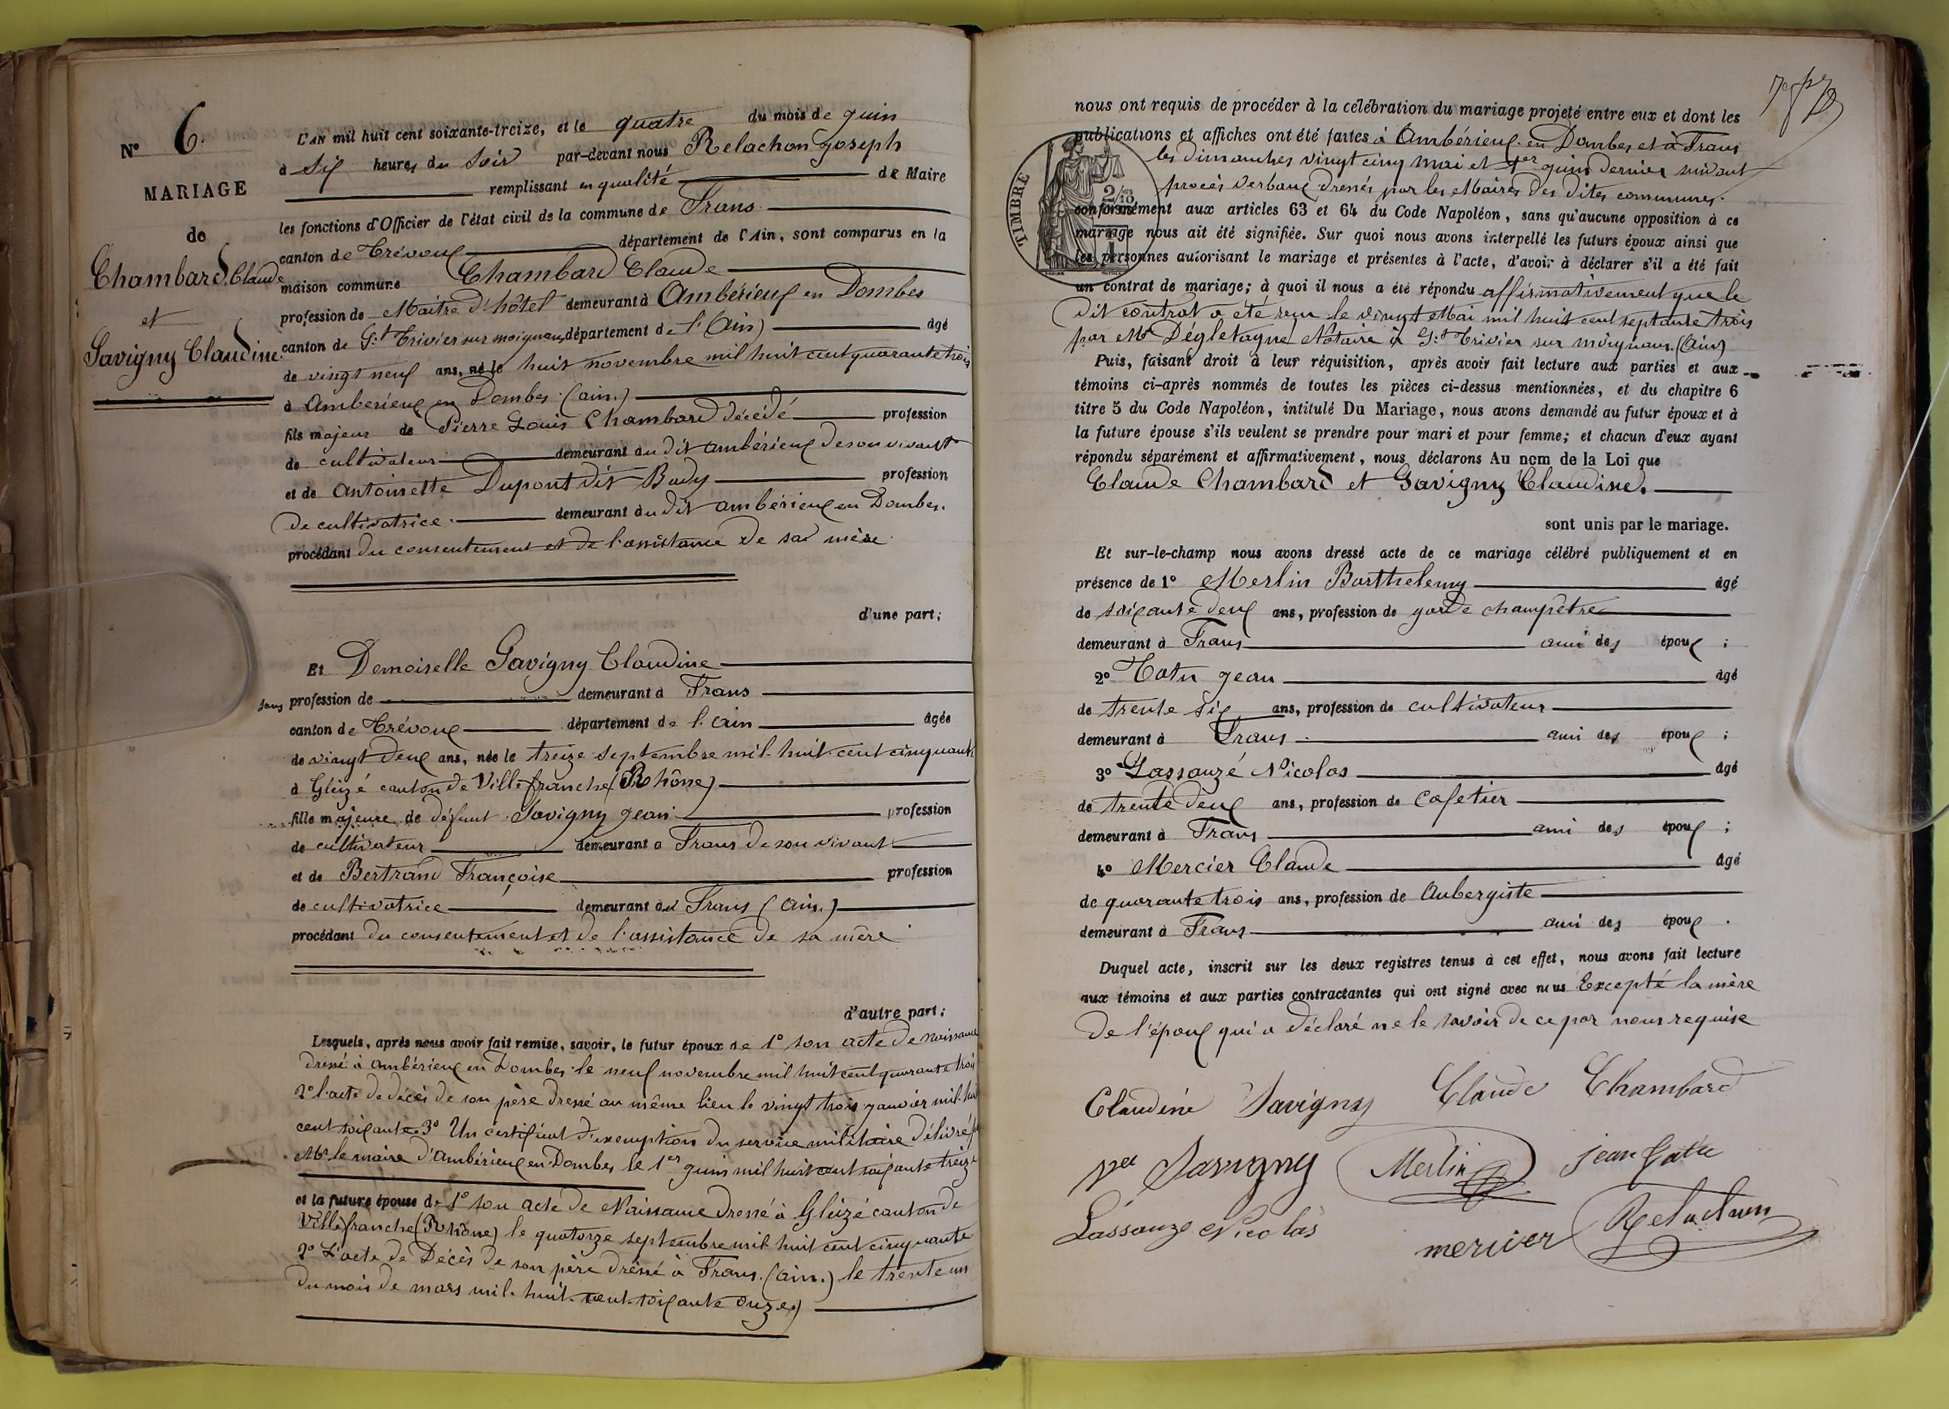 N° 6.
MARIAGE
de
Chambard Claude
et
Savigny Claudine
L'AN mil huit cent soixante-treize, et le quatre du mois de juin
à six heures du soir par-devant nous Relachon Joseph
remplissant en qualité de Maire
les fonctions d'Officier de l'état civil de la commune de Frans
canton de Trévoux département de l'Ain, sont comparus en la
maison commune Chambard Claude
profession de Maître d'hôtel demeurant à Ambérieux en Dombes
canton de St Trivier sur moignans département de l'(Ain) âgé
de vingt neuf ans, né le huit novembre mil huit cent quarante trois
à Ambérieux en Dombes (ain.)
fils majeur de Pierre Louis Chambard décédé profession
de cultivateur demeurant au dit ambérieux de son vivant
et de Antoinette Dupont dit Bady profession
de cultivatrice demeurant au dit ambérieux en Dombes.
procédant du consentement et de l'assistance de sa mère
d'une part;
Et Demoiselle Savigny Claudine
sans profession de demeurant à Frans
canton de Trévoux département de l'ain âgée
de vingt deux ans, née le treize septembre mil-huit-cent cinquante
à Gleizé canton de Villefranche (Rhône)
fille majeure de défunt Savigny Jean profession
de cultivateur demeurant à Frans de son vivant
et de Bertrand Françoise profession
de cultivatrice demeurant à Frans (ain.)
procédant du consentement et de l'assistance de sa mère
d'autre part;
Lesquels, après nous avoir fait remise, savoir, le futur époux de 1° son acte de naissance
dressé à ambérieux en Dombes le neuf novembre mil huit cent quarante trois
2° l'acte de décès de son père dressé au même lieu le vingt trois janvier mil-huit
cent soixante 3° Un certificat d'exemption du service militaire délivré par
Mr le maire d'Ambérieux en Dombes le 1er juin mil huit cent soixante treize
et la future épouse de 1° son acte de Naissance dressé à Gleizé canton de
Villefranche (Rhône) le quatorze septembre mil huit cent cinquante
2° L'acte de Décès de son père dressé à Frans (ain.) le trente un
du mois de mars mil-huit-cent-soixante onze)
nous ont requis de procéder à la célébration du mariage projeté entre eux et dont les
publications et affiches ont été faites à Ambérieux en Dombes et à Frans
les dimanches vingt cinq mai et 1er juin dernier suivant
procès verbaux dressés par les Maires des dites communes.
TIMBRE
conformément aux articles 63 et 64 du Code Napoléon, sans qu'aucune opposition à ce
mariage nous ait été signifiée. Sur quoi nous avons interpellé les futurs époux ainsi que
les personnes autorisant le mariage et présentes à l'acte, d'avoir à déclarer s'il a été fait
un contrat de mariage; à quoi il nous a été répondu affirmativement que le
dit contrat a été reçu le vingt Mai mil huit cent septante trois
par Me Dégletagne Notaire à St Trivier sur moignans (Ain)
Puis, faisant droit à leur réquisition, après avoir fait lecture aux parties et aux
témoins ci-après nommés de toutes les pièces ci-dessus mentionnées, et du chapitre 6
titre 5 du Code Napoléon, intitulé Du Mariage, nous avons demandé au futur époux et à
la future épouse s'ils veulent se prendre pour mari et pour femme; et chacun d'eux ayant
répondu séparément et affirmativement, nous déclarons Au nom de la Loi que
Claude Chambard et Savigny Claudine.
sont unis par le mariage.
Et sur-le-champ nous avons dressé acte de ce mariage célébré publiquement et en
présence de 1° Merlin Barthelemy âgé
de soixante deux ans, profession de garde champêtre
demeurant à Frans ami des époux ;
2° Catu Jean âgé
de trente six ans, profession de cultivateur
demeurant à Frans ami des époux ;
3° Lassauzé Nicolas âgé
de trente deux ans, profession de cafetier
demeurant à Frans ami des époux ;
4° Mercier Claude âgé
de quarante trois ans, profession de Aubergiste
demeurant à Frans ami des époux .
Duquel acte, inscrit sur les deux registres tenus à cet effet, nous avons fait lecture
aux témoins et aux parties contractantes qui ont signé avec nous Excepté la mère
de l'époux qui a déclaré ne le savoir de ce par nous requise
Claudine Savigny Claude Chambard
Vve Savigny Merlin jean Catu
Lassauze Nicolas mercier Relachon